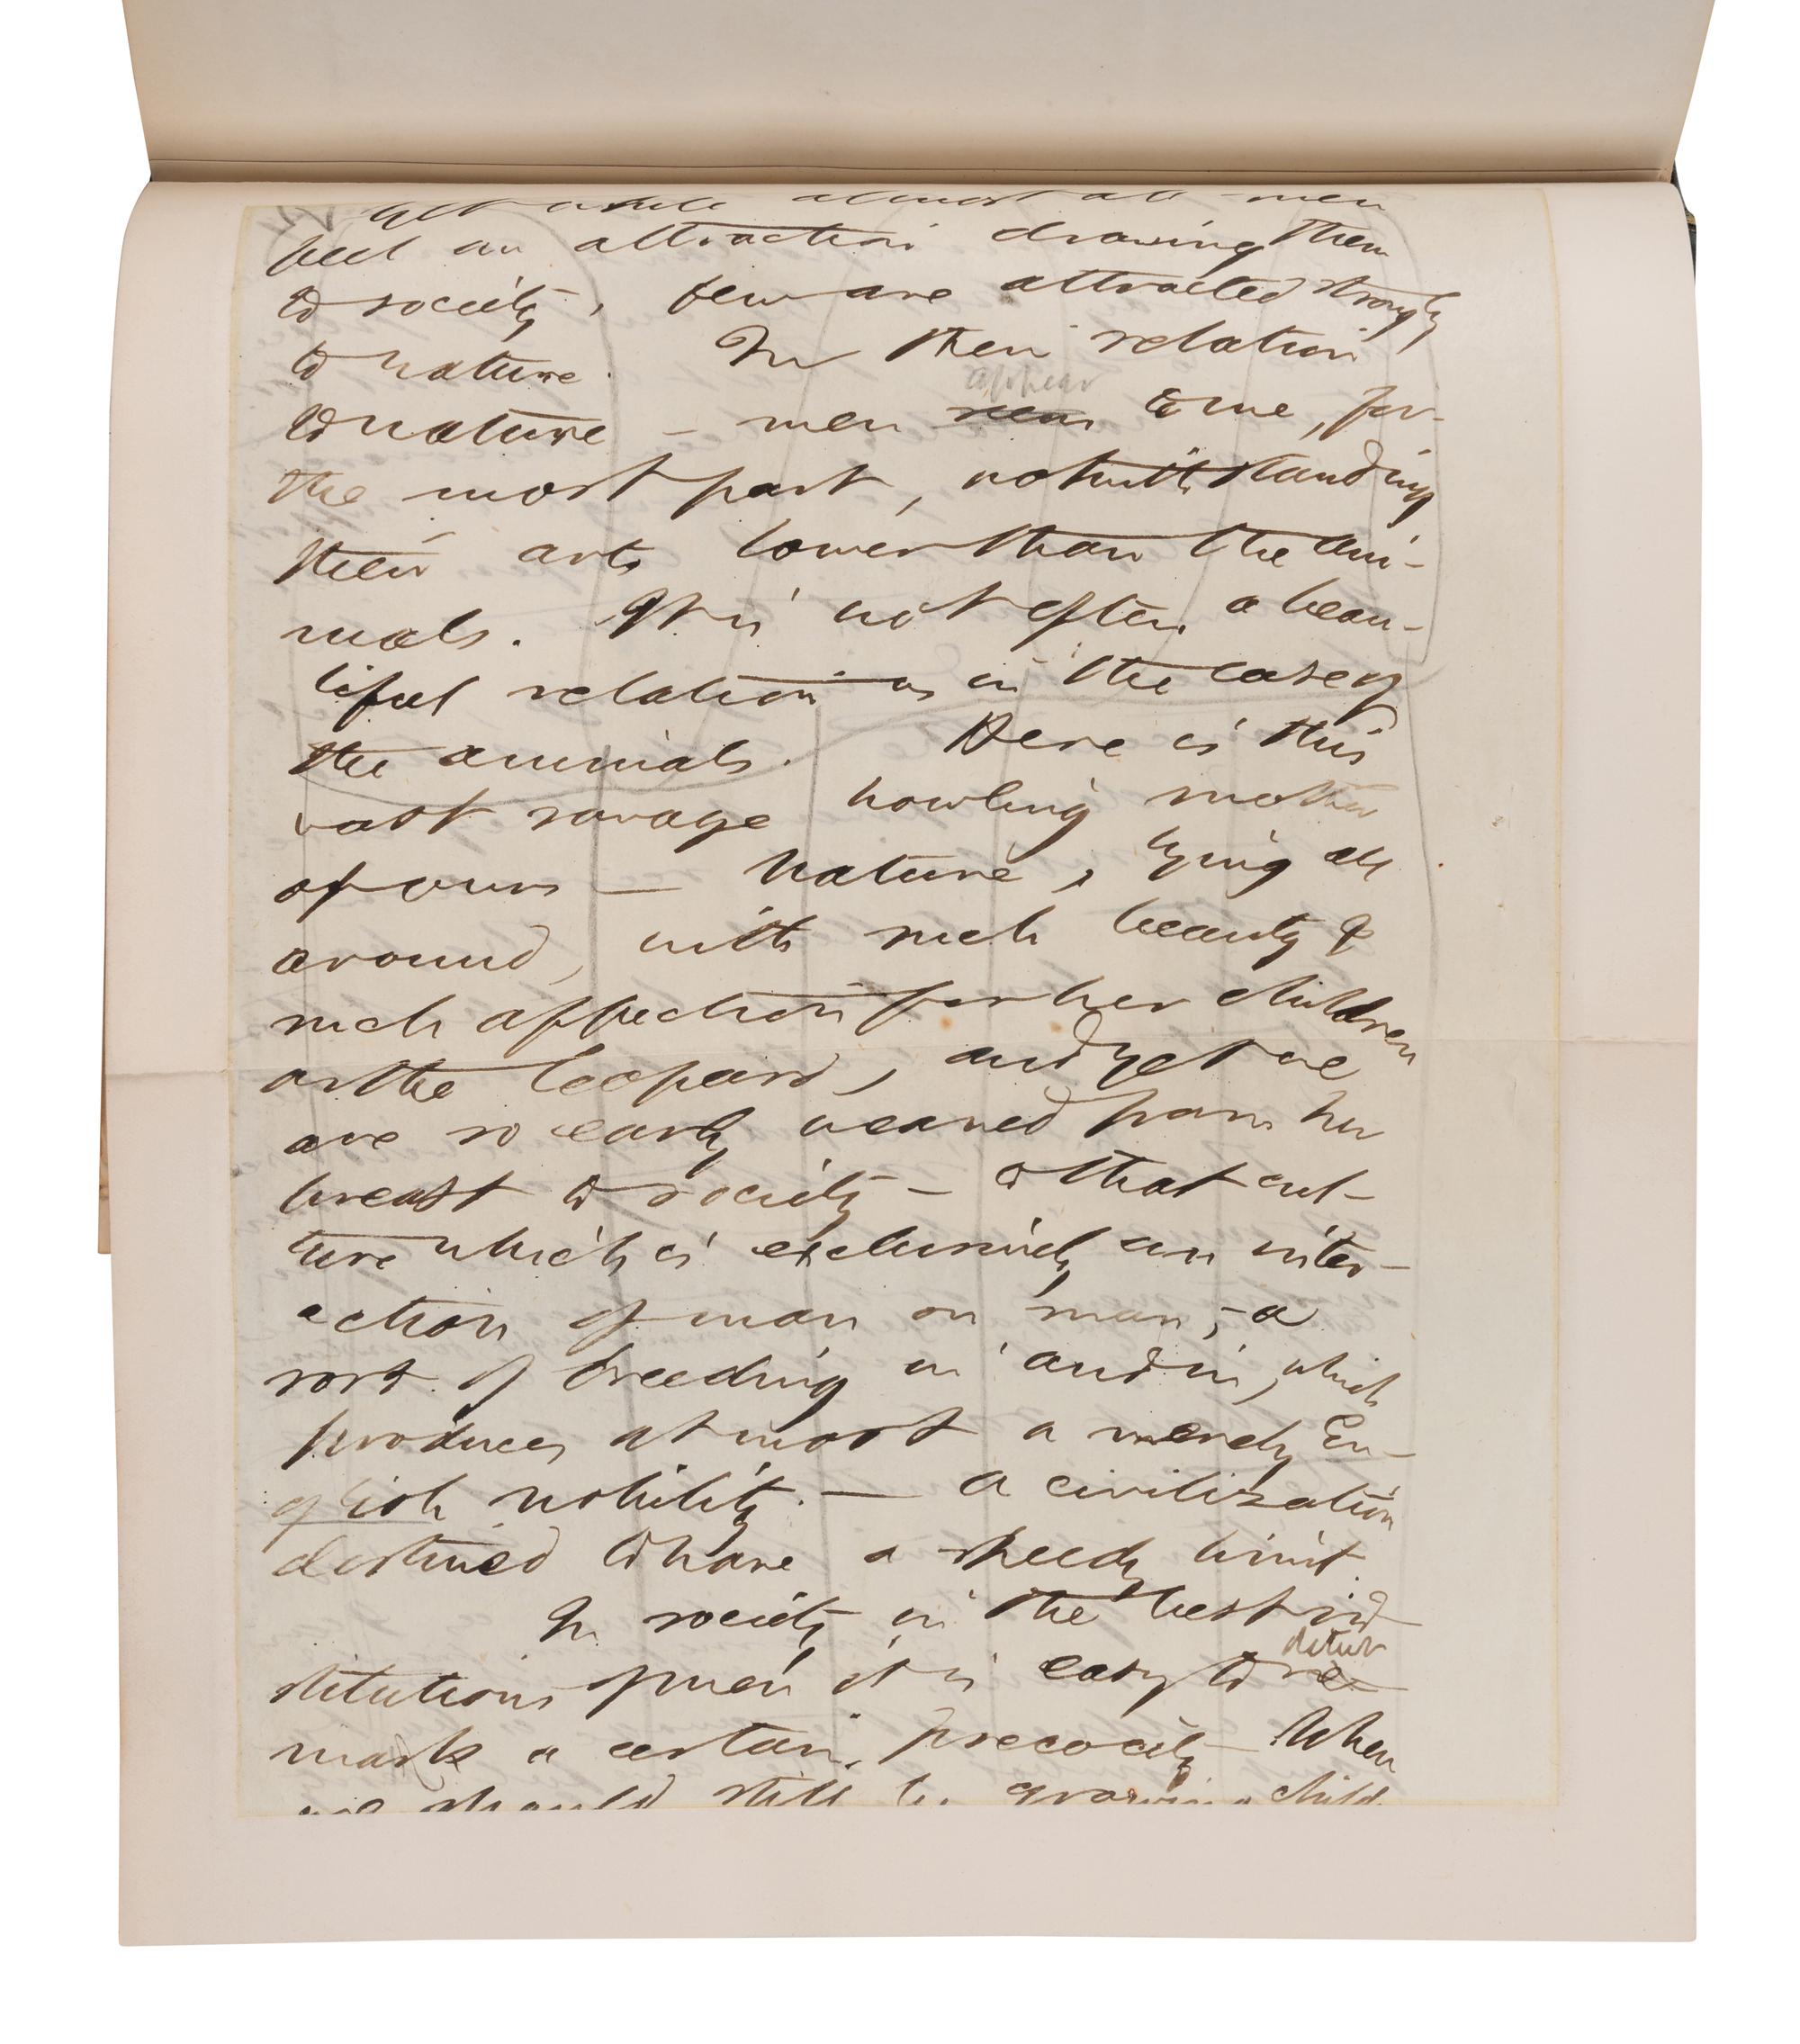 Yet while almost all men
feel an attraction drawing them
to society, few are attracted strongly
to nature. In their relation
appear
to nature – men seem to me, for
the most part, notwithstanding
their arts lower than the ani-
mals. It is not often a beau-
tiful relation as in the case of
the animals. Here is this
vast savage howling mother
of ours — Nature, lying all
around, with such beauty &
such affection for her children
as the leopard, and yet we
are so early weaned from her
breast to society – to that cul-
ture which is exclusively an inter-
action of man on man, – a
sort of breeding in and in, which
produces at most a merely En-
glish nobility. — a civilization
destined to have a speedy limit.
In society in the best in-
detect
stitutions of men it is easy to re-
mark a certain precocity When
we should still be growing child